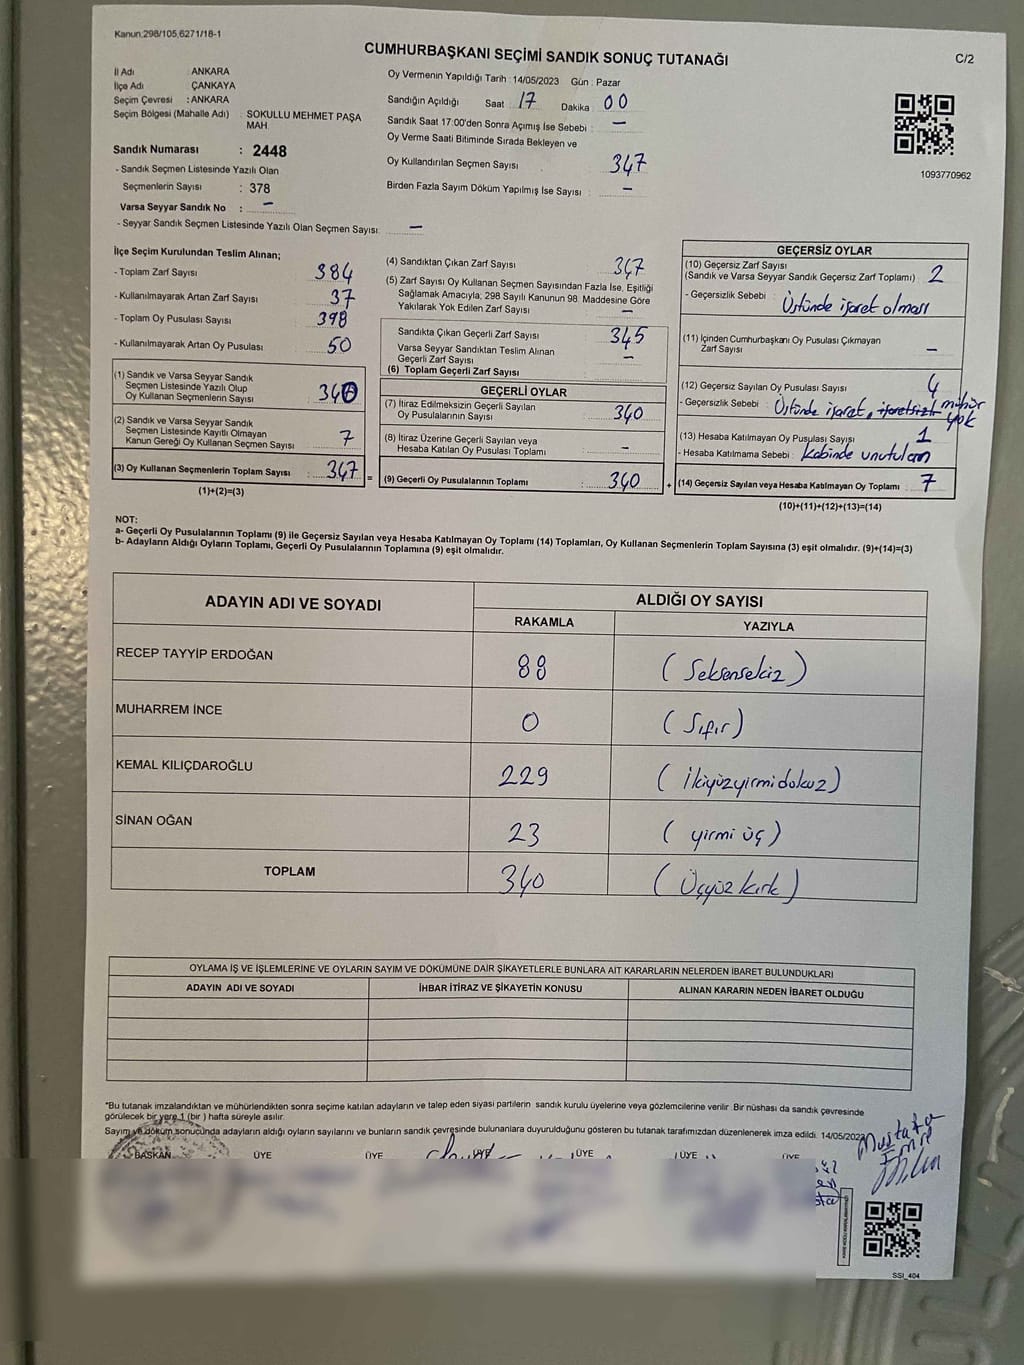 Kanun.298/105,6271/18-1
CUMHURBAŞKANI SEÇİMİ SANDIK SONUÇ TUTANAĞI
C/2
İl Adı : ANKARA
İlçe Adı : ÇANKAYA
Seçim Çevresi : ANKARA
Seçim Bölgesi (Mahalle Adı) : SOKULLU MEHMET PAŞA MAH.
Sandık Numarası : 2448
- Sandık Seçmen Listesinde Yazılı Olan
Seçmenlerin Sayısı : 378
Varsa Seyyar Sandık No : -
- Seyyar Sandık Seçmen Listesinde Yazılı Olan Seçmen Sayısı: -
Oy Vermenin Yapıldığı Tarih : 14/05/2023 Gün : Pazar
Sandığın Açıldığı Saat 17 Dakika 00
Sandık Saat 17:00'den Sonra Açımış İse Sebebi : -
Oy Verme Saati Bitiminde Sırada Bekleyen ve
Oy Kullandırılan Seçmen Sayısı 347
Birden Fazla Sayım Döküm Yapılmış İse Sayısı : -
1093770962
İlçe Seçim Kurulundan Teslim Alınan;
- Toplam Zarf Sayısı : 384
- Kullanılmayarak Artan Zarf Sayısı : 37
- Toplam Oy Pusulası Sayısı : 398
- Kullanılmayarak Artan Oy Pusulası : 50
(1) Sandık ve Varsa Seyyar Sandık
Seçmen Listesinde Yazılı Olup
Oy Kullanan Seçmenlerin Sayısı : 340
(2) Sandık ve Varsa Seyyar Sandık
Seçmen Listesinde Kayıtlı Olmayan
Kanun Gereği Oy Kullanan Seçmen Sayısı : 7
(3) Oy Kullanan Seçmenlerin Toplam Sayısı : 347 =
(1)+(2)=(3)
(4) Sandıktan Çıkan Zarf Sayısı : 347
(5) Zarf Sayısı Oy Kullanan Seçmen Sayısından Fazla İse, Eşitliği
Sağlamak Amacıyla; 298 Sayılı Kanunun 98. Maddesine Göre
Yakılarak Yok Edilen Zarf Sayısı : -
Sandıkta Çıkan Geçerli Zarf Sayısı : 345
Varsa Seyyar Sandıktan Teslim Alınan
Geçerli Zarf Sayısı : -
(6) Toplam Geçerli Zarf Sayısı :
GEÇERLİ OYLAR
(7) İtiraz Edilmeksizin Geçerli Sayılan
Oy Pusulalarının Sayısı : 340
(8) İtiraz Üzerine Geçerli Sayılan veya
Hesaba Katılan Oy Pusulası Toplamı : -
(9) Geçerli Oy Pusulalarının Toplamı : 340 +
GEÇERSİZ OYLAR
(10) Geçersiz Zarf Sayısı
(Sandık ve Varsa Seyyar Sandık Geçersiz Zarf Toplamı) : 2
- Geçersizlik Sebebi : Üstünde işaret olması
(11) İçinden Cumhurbaşkanı Oy Pusulası Çıkmayan
Zarf Sayısı : -
(12) Geçersiz Sayılan Oy Pusulası Sayısı : 4
- Geçersizlik Sebebi : Üstünde işaret, işaretsizl mühür
yok
(13) Hesaba Katılmayan Oy Pusulası Sayısı : 1
- Hesaba Katılmama Sebebi : Kabinde unutulan
(14) Geçersiz Sayılan veya Hesaba Katılmayan Oy Toplamı : 7
(10)+(11)+(12)+(13)=(14)
NOT:
a- Geçerli Oy Pusulalarının Toplamı (9) ile Geçersiz Sayılan veya Hesaba Katılmayan Oy Toplamı (14) Toplamları, Oy Kullanan Seçmenlerin Toplam Sayısına (3) eşit olmalıdır. (9)+(14)=(3)
b- Adayların Aldığı Oyların Toplamı, Geçerli Oy Pusulalarının Toplamına (9) eşit olmalıdır.
ADAYIN ADI VE SOYADI ALDIĞI OY SAYISI
RAKAMLA YAZIYLA
RECEP TAYYİP ERDOĞAN 88 (Seksensekiz)
MUHARREM İNCE 0 (Sıfır)
KEMAL KILIÇDAROĞLU 229 (İkiyüzyirmidokuz)
SİNAN OĞAN 23 (yirmi üç)
TOPLAM 340 (Üçyüz kırk)
OYLAMA İŞ VE İŞLEMLERİNE VE OYLARIN SAYIM VE DÖKÜMÜNE DAİR ŞİKAYETLERLE BUNLARA AİT KARARLARIN NELERDEN İBARET BULUNDUKLARI
ADAYIN ADI VE SOYADI İHBAR İTİRAZ VE ŞİKAYETİN KONUSU ALINAN KARARIN NEDEN İBARET OLDUĞU
*Bu tutanak imzalandıktan ve mühürlendikten sonra seçime katılan adayların ve talep eden siyasi partilerin sandık kurulu üyelerine veya gözlemcilerine verilir. Bir nüshası da sandık çevresinde
görülecek bir yere 1 (bir ) hafta süreyle asılır.
Sayım ve döküm sonucunda adayların aldığı oyların sayılarını ve bunların sandık çevresinde bulunanlara duyurulduğunu gösteren bu tutanak tarafımızdan düzenlenerek imza edildi. 14/05/2023
BAŞKAN ÜYE ÜYE ÜYE ÜYE ÜYE ÜYE
Mustafa
Emre
SSI_404